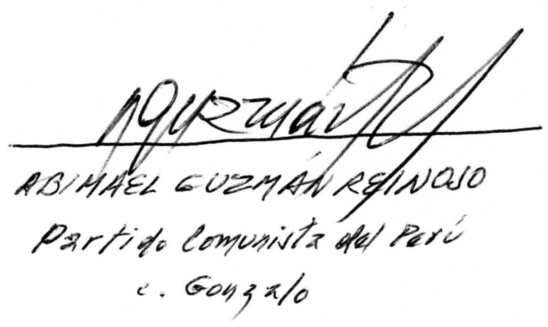 AGuzmánR
ABIMAEL GUZMÁN REINOSO
Partido Comunista del Perú
c. Gonzalo